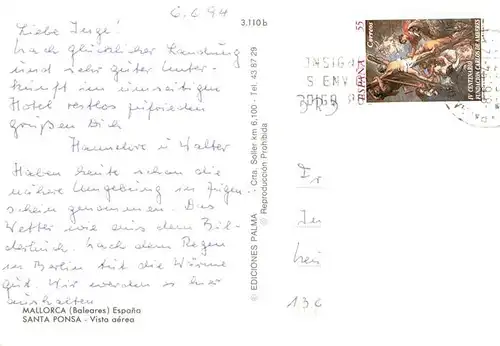 6.6.94
Liebe Inge!
Nach glücklicher Landung
und sehr guter Unter-
kunft im umseitigen
Hotel restlos zufrieden
grüßen Dich
Hannelore u Walter
Haben heute schon die
nähere Umgebung in Augen-
schein genommen. Das
Wetter wie aus dem Bil-
derbuch. Nach dem Regen
in Berlin tut die Wärme
gut. Wir werden es hier
aushalten
MALLORCA (Baleares) España
SANTA PONSA - Vista aérea
3.110 b
© EDICIONES PALMA - Ctra. Soller km 6,100 - Tel. 43 87 29
® Reproducción Prohibida
55
Correos
ESPAÑA
IV CENTENARIO
FUNDACION CARLOS DE AMBERES
INSIG
S ENV
DIGO
Fr
In
136